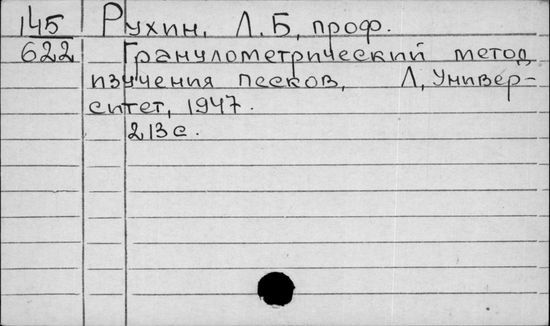 145 Рухин, Л.Б, проф.
622 Гранулометрический метод
изучения песков, Л, Универ-
ситет, 1947.
213 с.